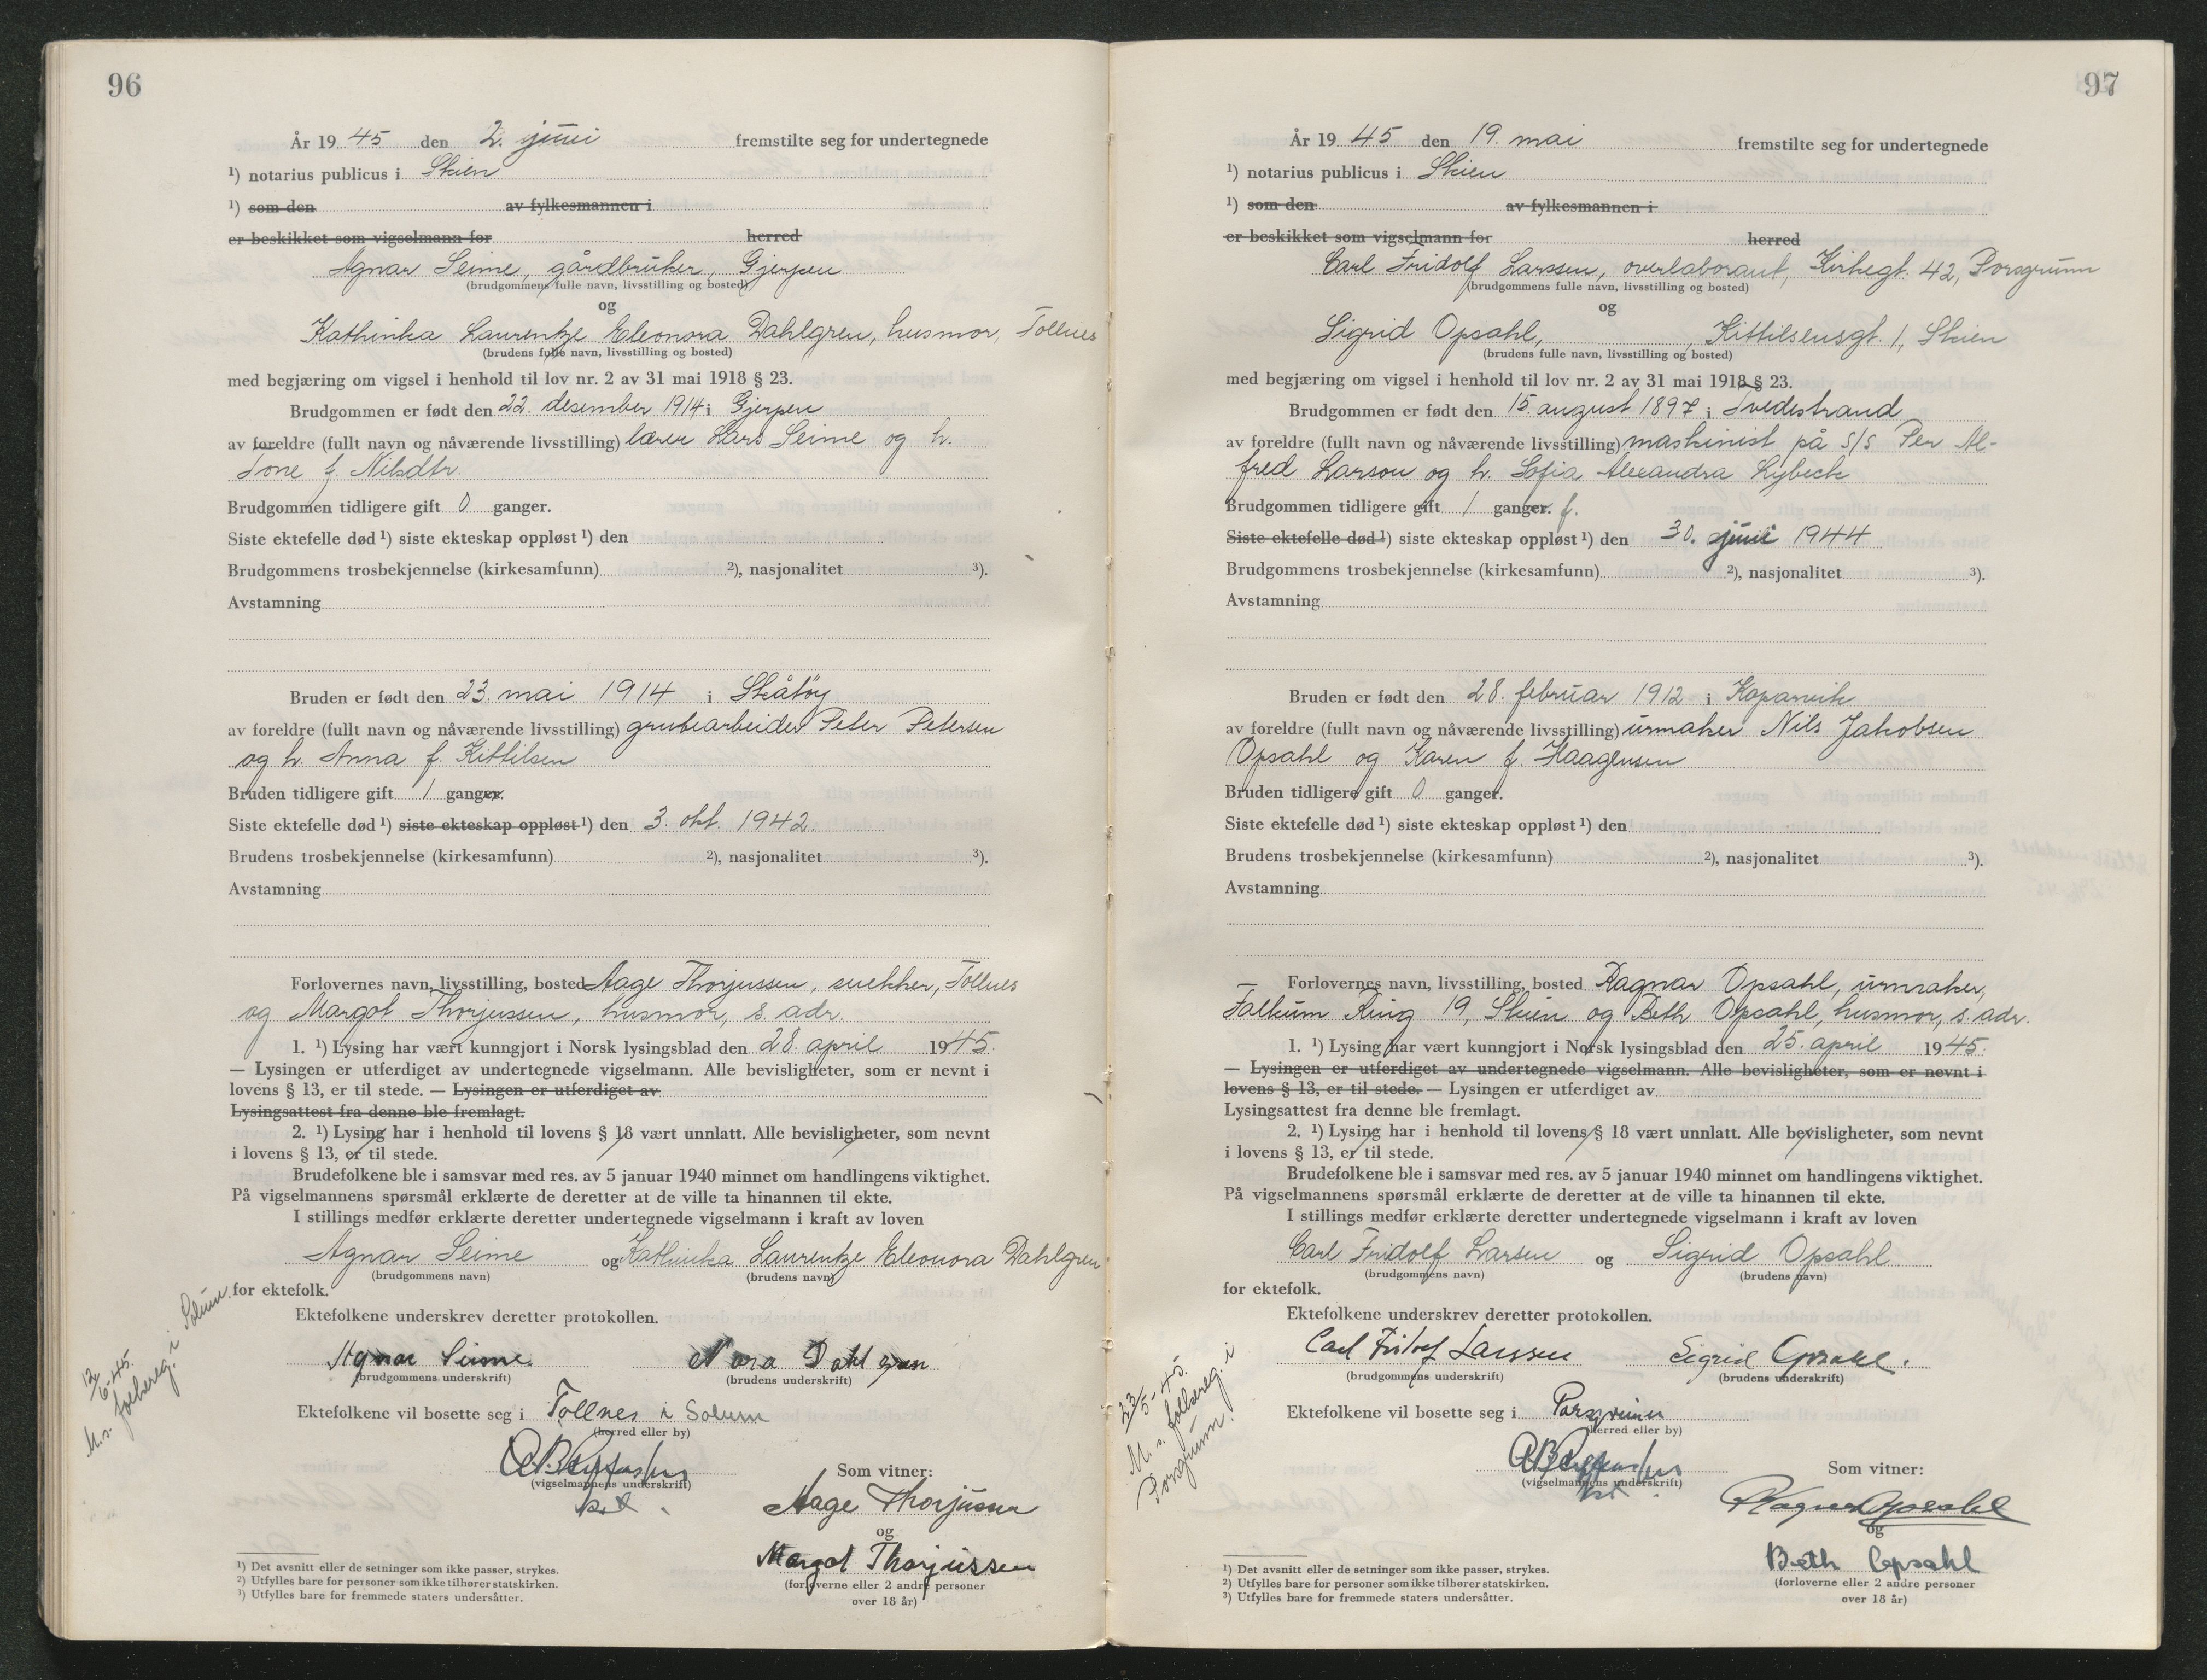 96
År 19 45 den 2. juni fremstilte seg for undertegnede
¹) notarius publicus i Skien
¹) som den av fylkesmannen i
er beskikket som vigselmann for herred
Agnar Seime, gårdbruker, Gjerpen
(brudgommens fulle navn, livsstilling og bosted)
og
Kathinka Laurentze Eleonora Dahlgren, husmor, Tollnes
(brudens fulle navn, livsstilling og bosted)
med begjæring om vigsel i henhold til lov nr. 2 av 31 mai 1918 § 23.
Brudgommen er født den 22. desember 1914 i Gjerpen
av foreldre (fullt navn og nåværende livsstilling) lærer Lars Seime og h.
Tone f. Nilsdtr.
Brudgommen tidligere gift 0 ganger.
Siste ektefelle død ¹) siste ekteskap oppløst ¹) den
Brudgommens trosbekjennelse (kirkesamfunn) ²), nasjonalitet ³).
Avstamning
Bruden er født den 23. mai 1914 i Skåtøy
av foreldre (fullt navn og nåværende livsstilling) grubearbeider Peter Petersen
og h. Anna f. Kittilsen
Bruden tidligere gift 1 ganger.
Siste ektefelle død ¹) siste ekteskap oppløst ¹) den 3. okt. 1942.
Brudens trosbekjennelse (kirkesamfunn) ²), nasjonalitet ³).
Avstamning
Forlovernes navn, livsstilling, bosted Aage Thorjussen, snekker, Tollnes
og Margot Thorjussen, husmor, s. adr.
1. ¹) Lysing har vært kunngjort i Norsk lysingsblad den 28. april 1945.
— Lysingen er utferdiget av undertegnede vigselmann. Alle bevisligheter, som er nevnt i
lovens § 13, er til stede. — Lysingen er utferdiget av
Lysingsattest fra denne ble fremlagt.
2. ¹) Lysing har i henhold til lovens § 18 vært unnlatt. Alle bevisligheter, som nevnt
i lovens § 13, er til stede.
Brudefolkene ble i samsvar med res. av 5 januar 1940 minnet om handlingens viktighet.
På vigselmannens spørsmål erklærte de deretter at de ville ta hinannen til ekte.
I stillings medfør erklærte deretter undertegnede vigselmann i kraft av loven
Agnar Seime og Kathinka Laurentze Eleonora Dahlgren
(brudgommens navn) (brudens navn)
for ektefolk.
Ektefolkene underskrev deretter protokollen.
Agnar Seime. Nora Dahlgren
(brudgommens underskrift) (brudens underskrift)
Ektefolkene vil bosette seg i Tollnes i Solum
(herred eller by)
12/6-45.
M. s. folkereg. i Solum.
(vigselmannens underskrift)
Som vitner:
Aage Thorjussen
og
Margot Thorjussen
(forloverne eller 2 andre personer
over 18 år)
¹) Det avsnitt eller de setninger som ikke passer, strykes.
²) Utfylles bare for personer som ikke tilhører statskirken.
³) Utfylles bare for fremmede staters undersåtter.
97
År 19 45 den 19. mai fremstilte seg for undertegnede
¹) notarius publicus i Skien
¹) som den av fylkesmannen i
er beskikket som vigselmann for herred
Carl Fridolf Larssen, overlaborant, Kirkegt. 42, Porsgrunn
(brudgommens fulle navn, livsstilling og bosted)
og
Sigrid Opsahl, , Kittilsensgt. 1, Skien
(brudens fulle navn, livsstilling og bosted)
med begjæring om vigsel i henhold til lov nr. 2 av 31 mai 1918 § 23.
Brudgommen er født den 15. august 1897 i Tvedestrand
av foreldre (fullt navn og nåværende livsstilling) maskinist på s/s Per Al-
fred Larson og h. Sofia Alexandra Lybeck
Brudgommen tidligere gift 1 ganger. f.
Siste ektefelle død ¹) siste ekteskap oppløst ¹) den 30. juni 1944
Brudgommens trosbekjennelse (kirkesamfunn) ²), nasjonalitet ³).
Avstamning
Bruden er født den 28. februar 1912 i Kopervik
av foreldre (fullt navn og nåværende livsstilling) urmaker Nils Jakobsen
Opsahl og Karen f. Haagensen
Bruden tidligere gift 0 ganger.
Siste ektefelle død ¹) siste ekteskap oppløst ¹) den
Brudens trosbekjennelse (kirkesamfunn) ²), nasjonalitet ³).
Avstamning
Forlovernes navn, livsstilling, bosted Ragnar Opsahl, urmaker,
Falkum Ring 19, Skien og Beth Opsahl, husmor, s. adr.
1. ¹) Lysing har vært kunngjort i Norsk lysingsblad den 25. april 1945.
— Lysingen er utferdiget av undertegnede vigselmann. Alle bevisligheter, som er nevnt i
lovens § 13, er til stede. — Lysingen er utferdiget av
Lysingsattest fra denne ble fremlagt.
2. ¹) Lysing har i henhold til lovens § 18 vært unnlatt. Alle bevisligheter, som nevnt
i lovens § 13, er til stede.
Brudefolkene ble i samsvar med res. av 5 januar 1940 minnet om handlingens viktighet.
På vigselmannens spørsmål erklærte de deretter at de ville ta hinannen til ekte.
I stillings medfør erklærte deretter undertegnede vigselmann i kraft av loven
Carl Fridolf Larsen og Sigrid Opsahl
(brudgommens navn) (brudens navn)
for ektefolk.
Ektefolkene underskrev deretter protokollen.
Carl Fridolf Larssen Sigrid Opsahl.
(brudgommens underskrift) (brudens underskrift)
Ektefolkene vil bosette seg i Porsgrunn
(herred eller by)
23/5-45.
M. s. folkereg. i
Porsgrunn.
(vigselmannens underskrift)
Som vitner:
Ragnar Opsahl
og
Beth Opsahl
(forloverne eller 2 andre personer
over 18 år)
¹) Det avsnitt eller de setninger som ikke passer, strykes.
²) Utfylles bare for personer som ikke tilhører statskirken.
³) Utfylles bare for fremmede staters undersåtter.